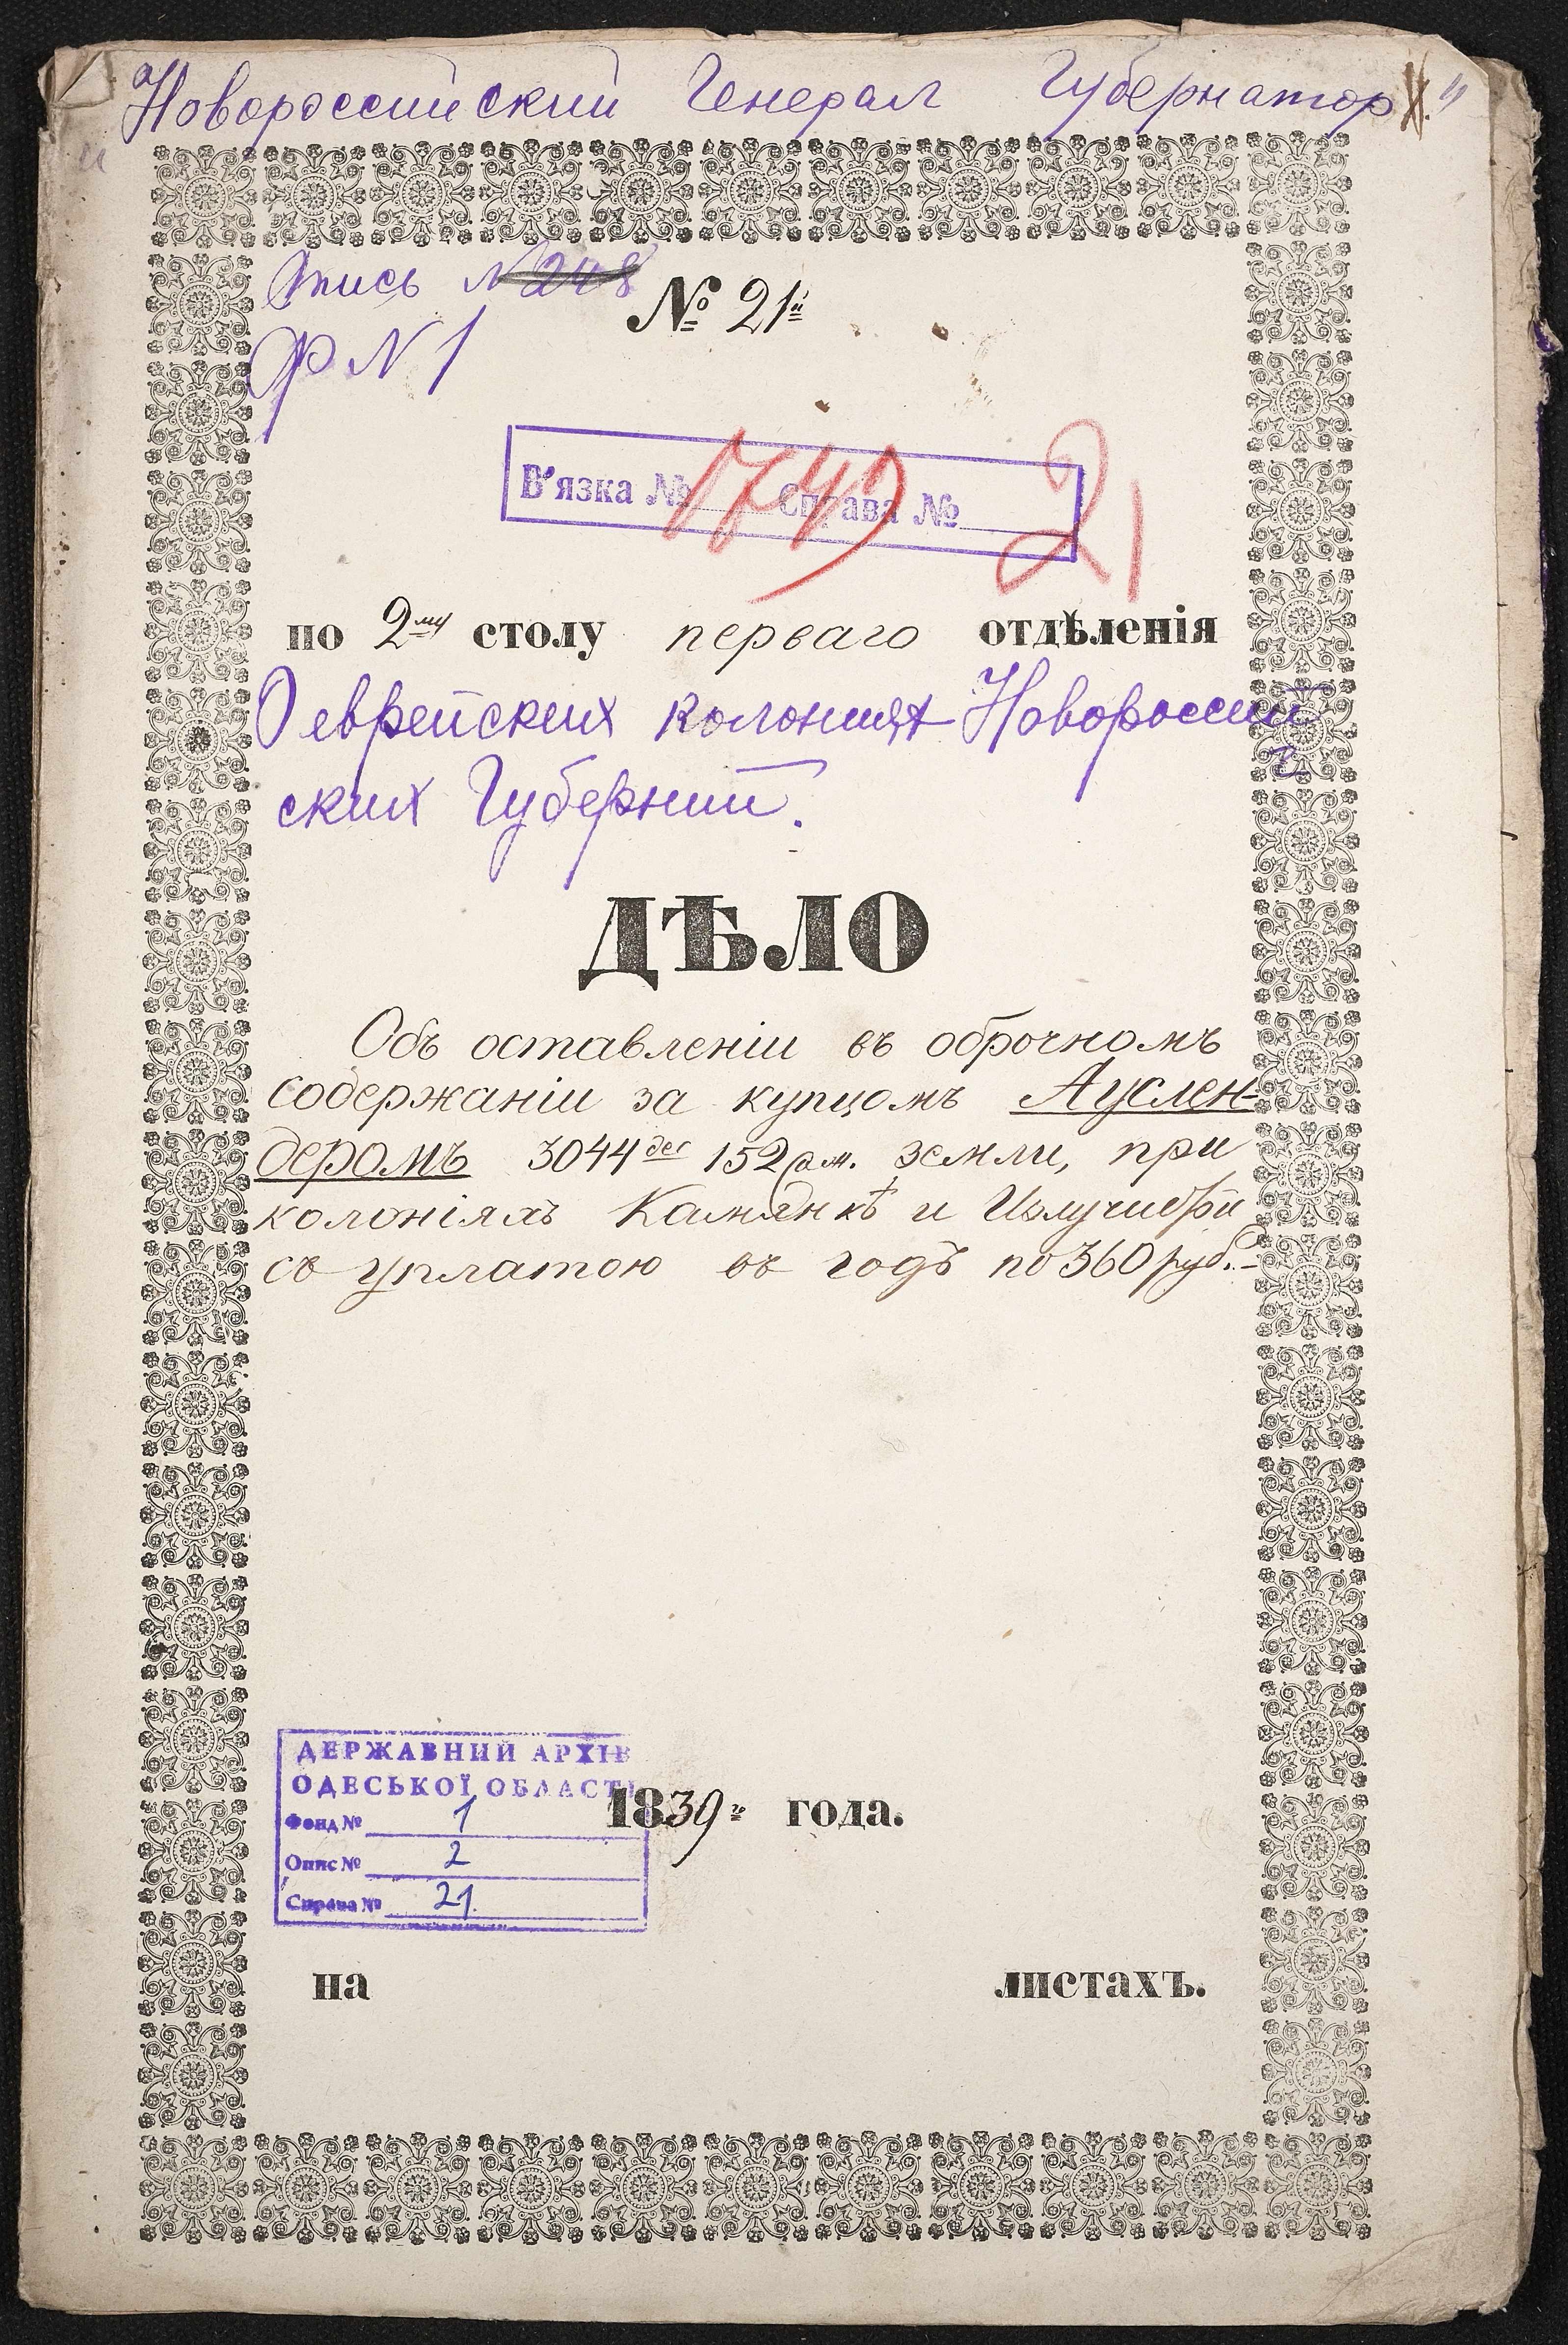 "Новороссийский Генерал Губернатор"
Опись №248
№ 21й
Ф N 1
В'язка № 1749 Справа № 21
по 2му столу перваго отдѣленія
О еврейских колониях Новороссий
ских Губерний.
ДѢЛО
Объ оставленіи въ оброчномъ
содержаніи за купцомъ Ауслен-
деромъ 3044 дес 152 саж. земли, при
колоніяхъ Камянкѣ и
съ уплатою въ годъ по 360 руб.-
ДЕРЖАВНИЙ АРХІВ
ОДЕСЬКОЇ ОБЛАСТІ
1839 го года.
Фонд № 1
Опис № 2
Справа № 21
на листахъ.